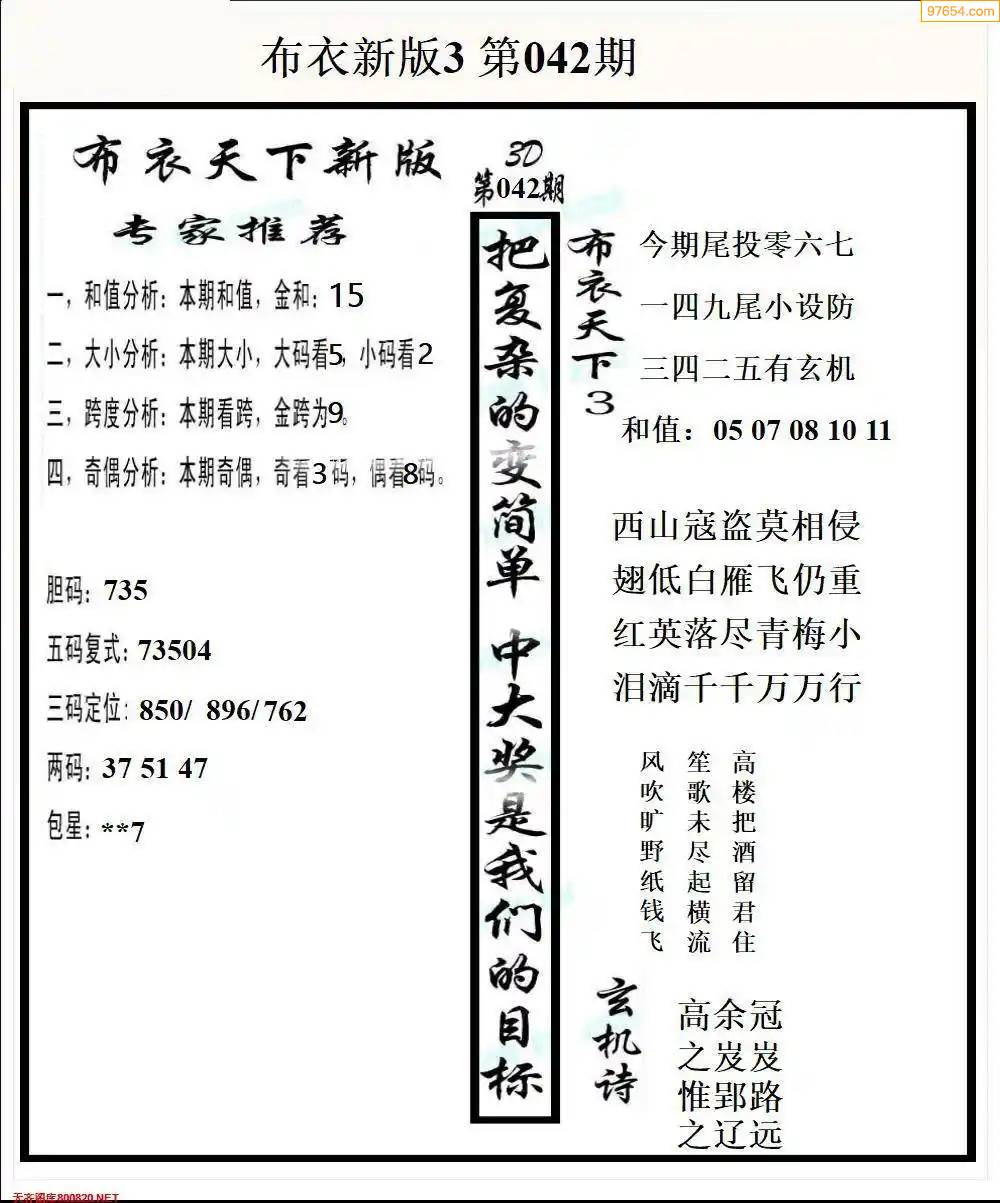 97654.com
布衣新版3 第042期
布衣天下新版
专家推荐
一，和值分析：本期和值，金和：15
二，大小分析：本期大小，大码看5，小码看2
三，跨度分析：本期看跨，金跨为9。
四，奇偶分析：本期奇偶，奇看3码，偶看8码。
胆码：735
五码复式：73504
三码定位：850/ 896/ 762
两码：37 51 47
包星：**7
3D
第042期
把复杂的变简单 中大奖是我们的目标
布衣天下3
今期尾投零六七
一四九尾小设防
三四二五有玄机
和值：05 07 08 10 11
西山寇盗莫相侵
翅低白雁飞仍重
红英落尽青梅小
泪滴千千万万行
高楼把酒留君住
笙歌未尽起横流
风吹旷野纸钱飞
玄机诗
高余冠
之岌岌
惟郢路
之辽远